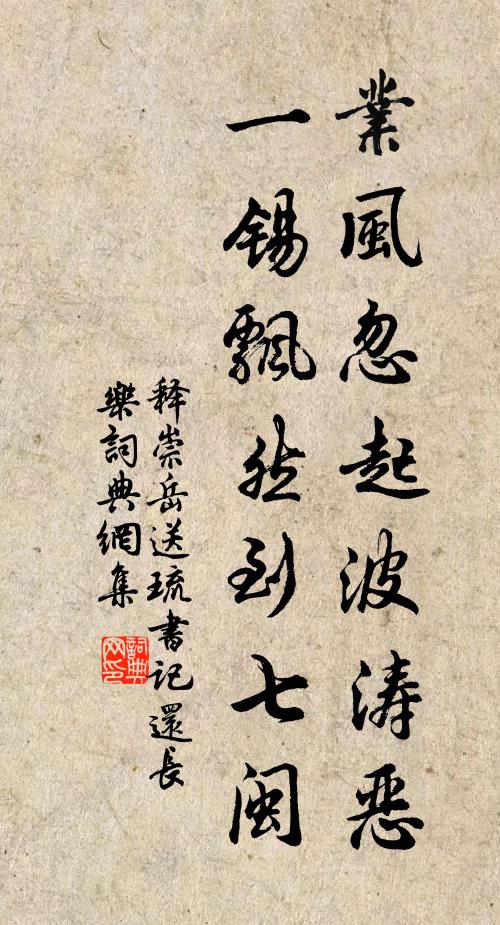 業風忽起波涛惡
一錫飄然到七閩
释崇岳送琉書記還長
樂詞典網集
詞典网印